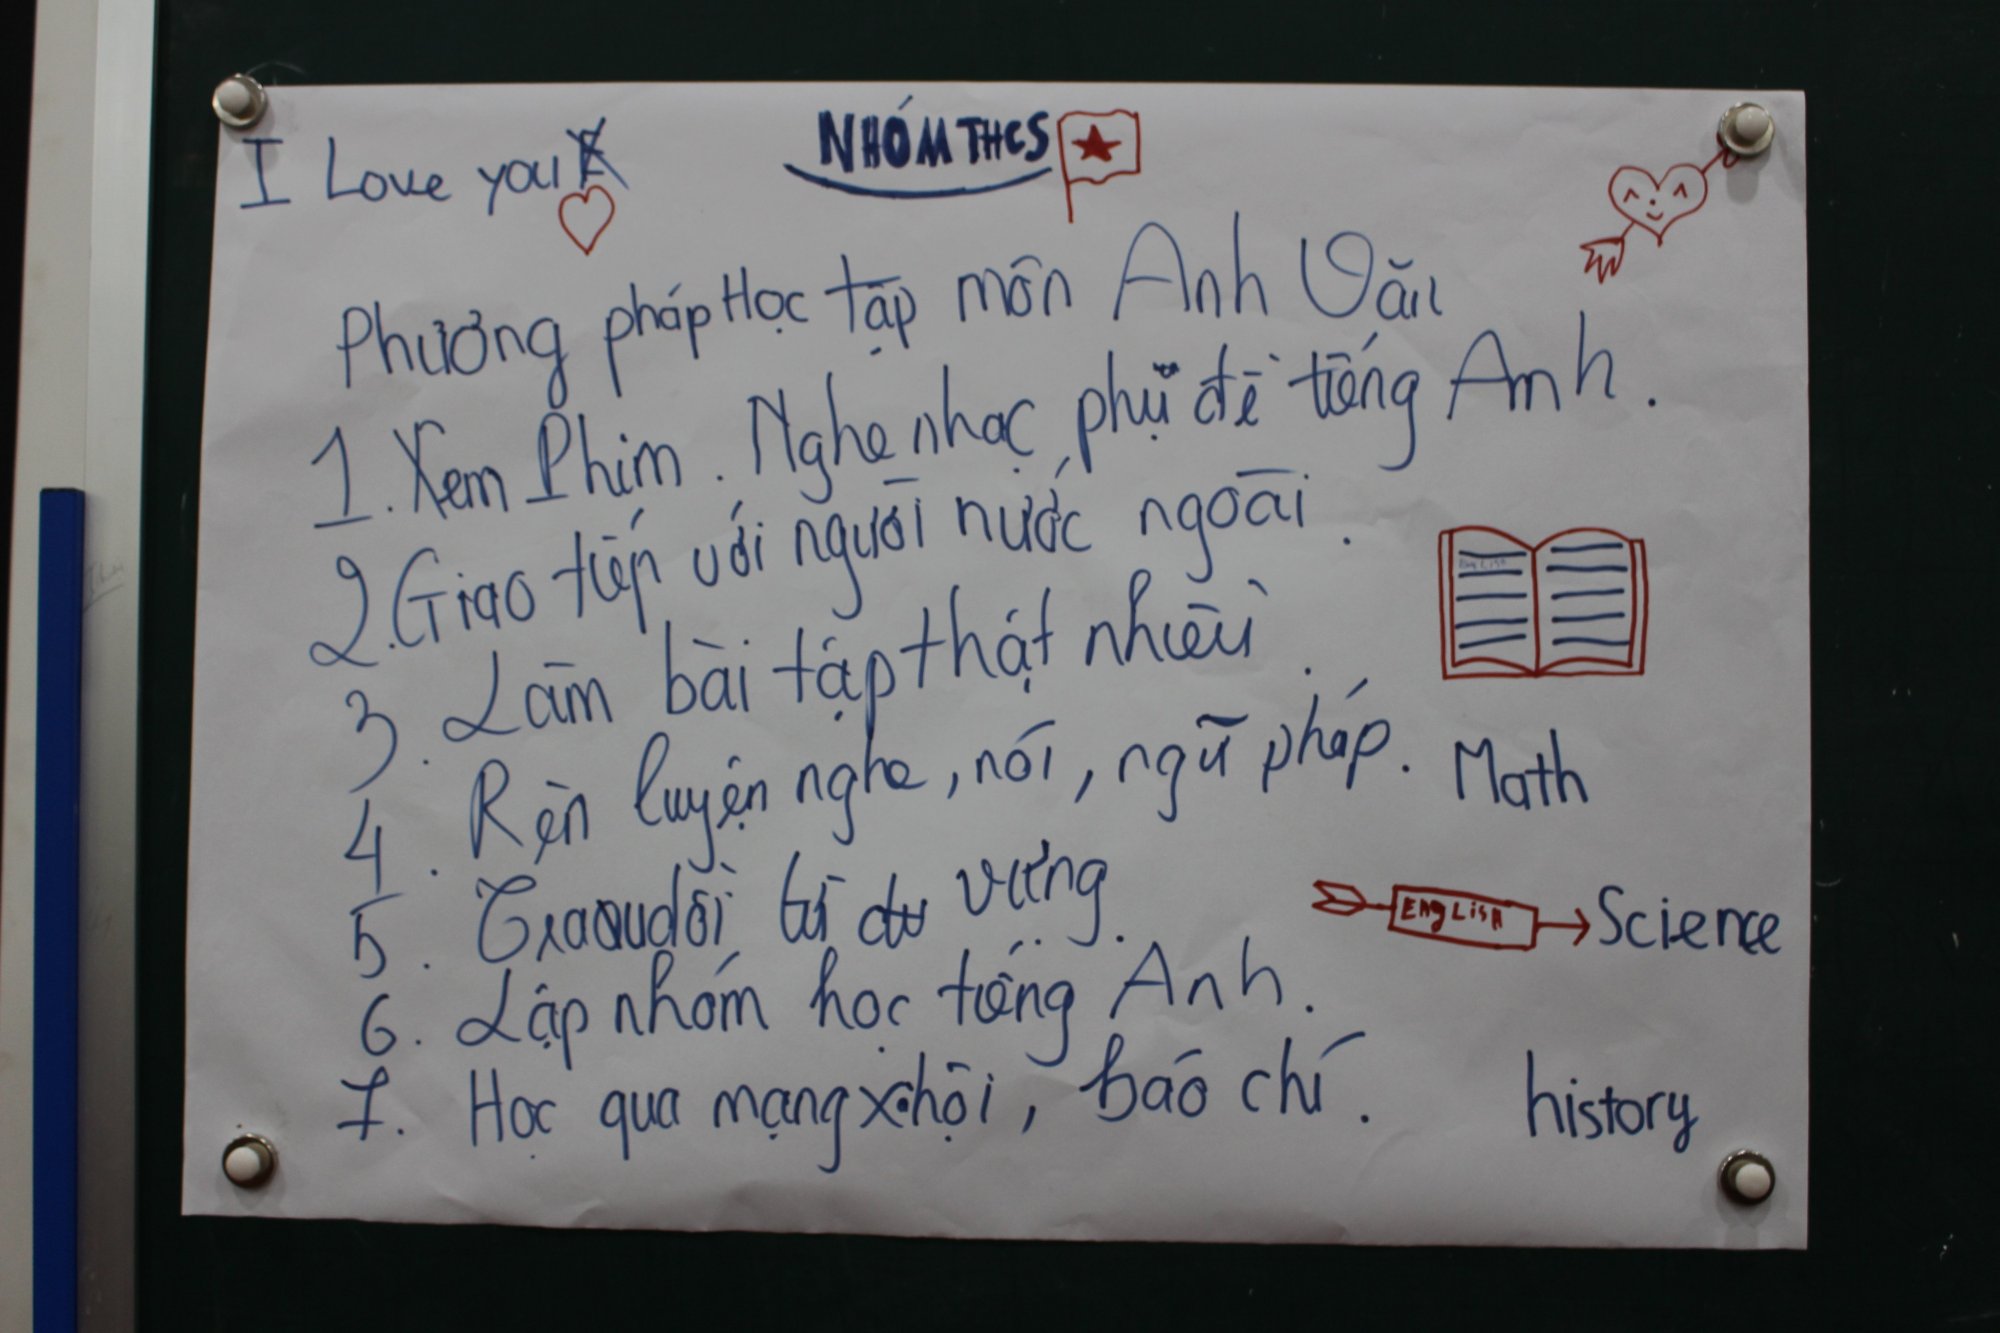 NHÓM THCS
I Love you
Phương pháp Học tập môn Anh Văn
1. Xem Phim. Nghe nhạc phụ đề tiếng Anh.
2. Giao tiếp với người nước ngoài.
3. Làm bài tập thật nhiều.
4. Rèn luyện nghe, nói, ngữ pháp.
Math
5. Traoudồi từ dư vựng.
ENgLiSH
Science
6. Lập nhóm học tiếng Anh.
7. Học qua mạng x.hội, báo chí.
history